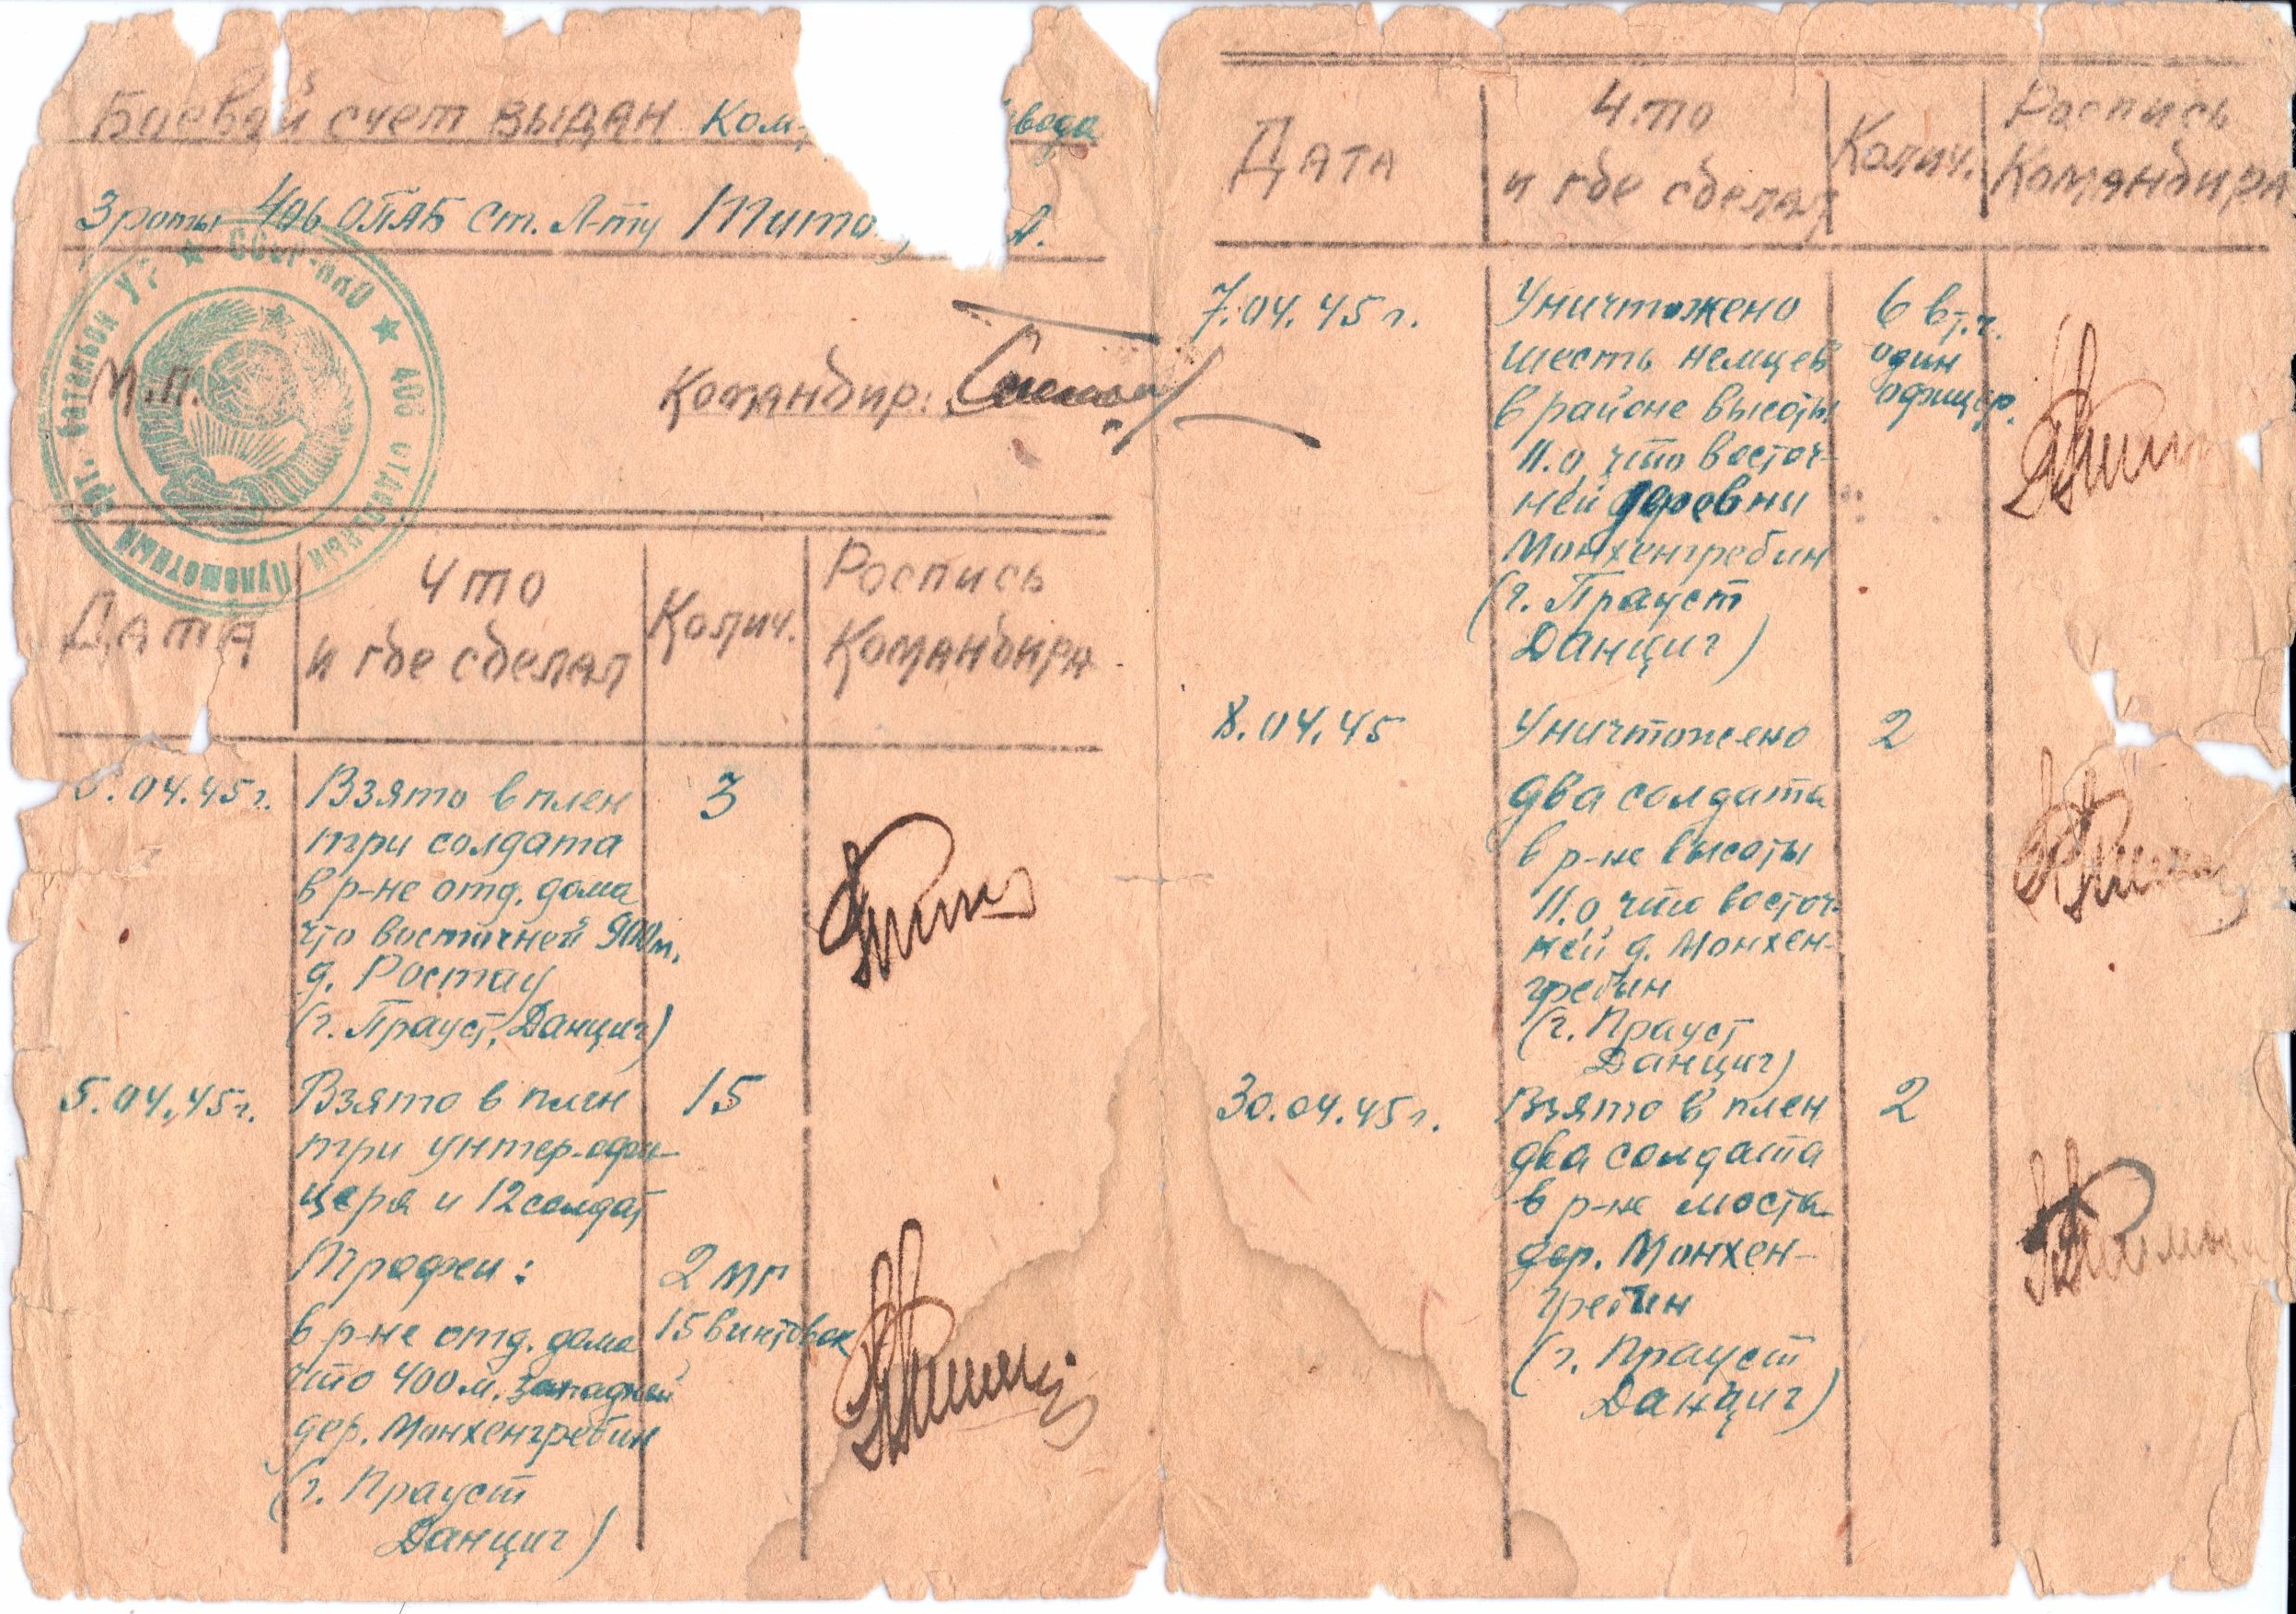 Боевой счет выдан Ком-
взвода
3 роты 406 ОПАБ Ст. Л-ту Тито
А.
ССР-НКО ★ 406 отдельный Пулеметный арт. батальон УР ★
М.П.
Командир:
Дата
Что
и где сделал
Колич.
Роспись
Командира
.04.45г.
Взято в плен
три солдата
в р-не отд. дома
что восточней 900м.
д. Ростау
(г. Прауст, Данциг)
3
5.04.45г.
Взято в плен
три унтер-офи-
цера и 12 солдат
15
Трофеи:
2 МГ
в р-не отд. дома
15 винтовок
что 400 м. западней
дер. Монхенгребин
(г. Прауст
Данциг)
Дата
Что
и где сделал
Колич.
Роспись
Командира
7.04.45г.
Уничтожено
шесть немцев
в районе высоты
11.0 что восточ-
ней деревни
Монхенгребин
(г. Прауст
Данциг)
6 в т.ч.
один
офицер.
8.04.45
Уничтожено
два солдата
в р-не высоты
11.0 что восточ-
ней д. Монхен-
гребин
(г. Прауст
Данциг)
2
30.04.45г.
Взято в плен
два солдата
в р-не моста
дер. Монхен-
гребин
(г. Прауст
Данциг)
2